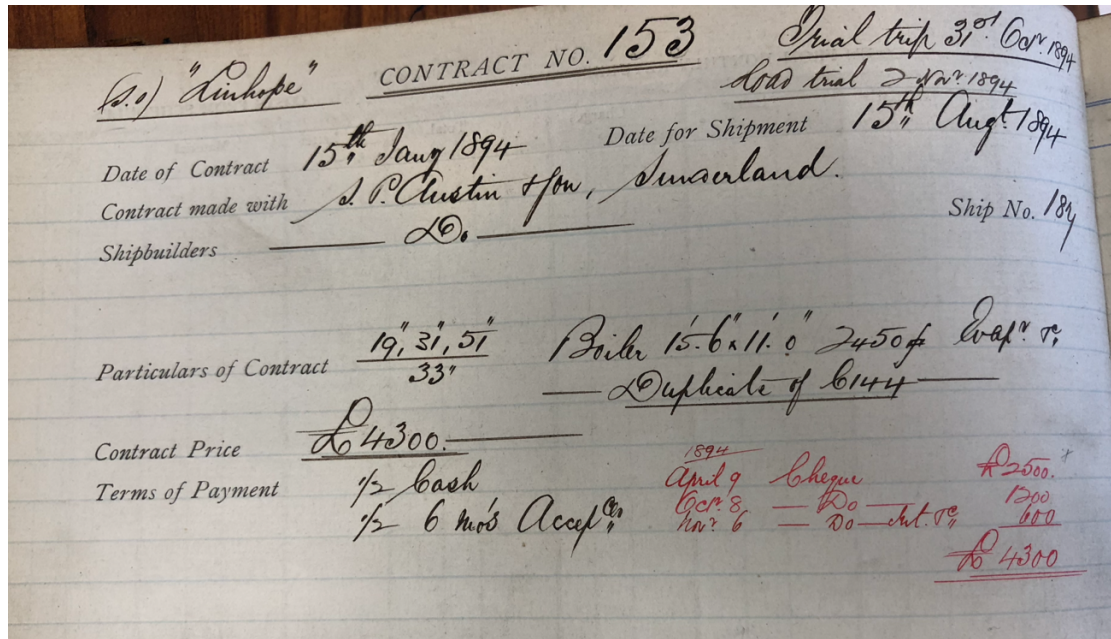 (S.S) "Linhope" CONTRACT NO. 153 Trial trip 31st Octr 1894
Load trial 2 Novr 1894
Date of Contract 15th Jany 1894 Date for Shipment 15th Augt 1894
Contract made with S. P. Austin & Son, Sunderland.
Ship No. 18
Shipbuilders Do.
19", 31", 51"
Particulars of Contract 33" Boiler 15'.6" x 11'.0" 2450 Evapr &c,
Duplicate of C144
Contract Price £4300.
Terms of Payment 1/2 Cash
1/2 6 mo's Accepces
1894
April 9 Cheque £2500.
Octr 8 — Do — 1200
Novr 6 — Do — Int. &c, 600
£4300